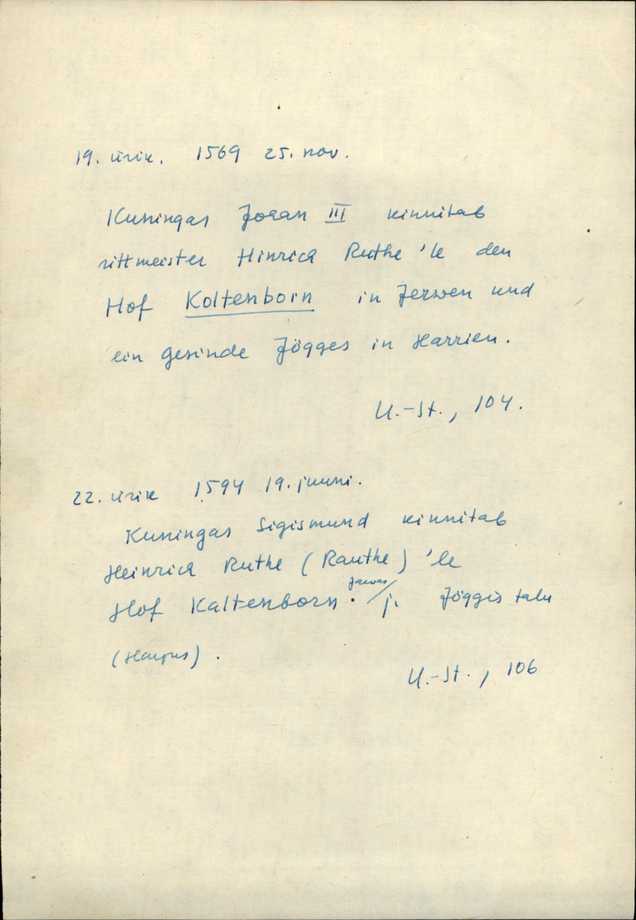 19. ürik. 1569 25. nov.
Kuningas Johan III kinnitab
rittmeister Hinrich Ruthe 'le den
Hof Koltenborn in Jerwen und
ein Gesinde Jögges in Harrien.
U.-St., 104.
22. ürik 1594 19. juuni.
Kuningas Sigismund kinnitab
Heinrich Ruthe (Rauthe) 'le
Hof Kaltenborn. Järvas / j. Jöggis talu
(Harjus).
U.-St., 106